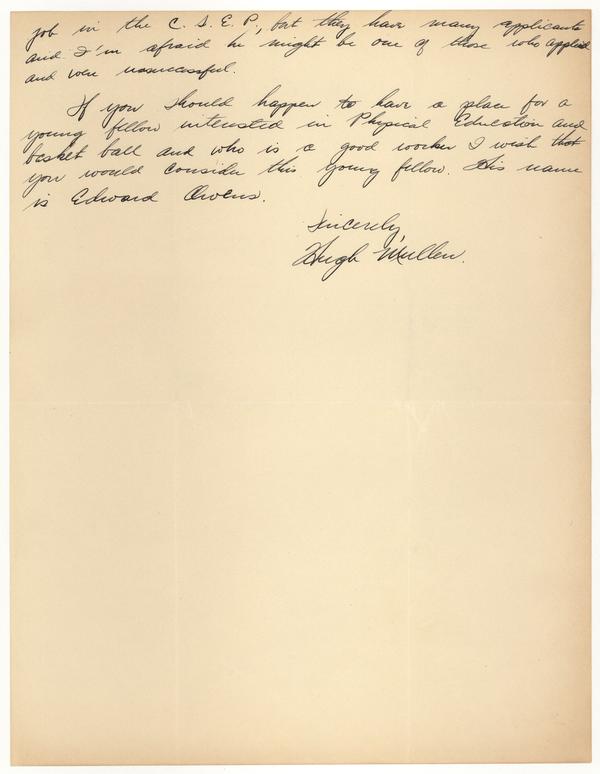 job in the C. S. E. P., but they have many applicants
and I'm afraid he might be one of those who applied
and were unsuccessful.
If you should happen to have a place for a
young fellow interested in Physical Education and
basket ball and who is a good worker I wish that
you would consider this young fellow. His name
is Edward Owens.
Sincerely,
Hugh Mullen.